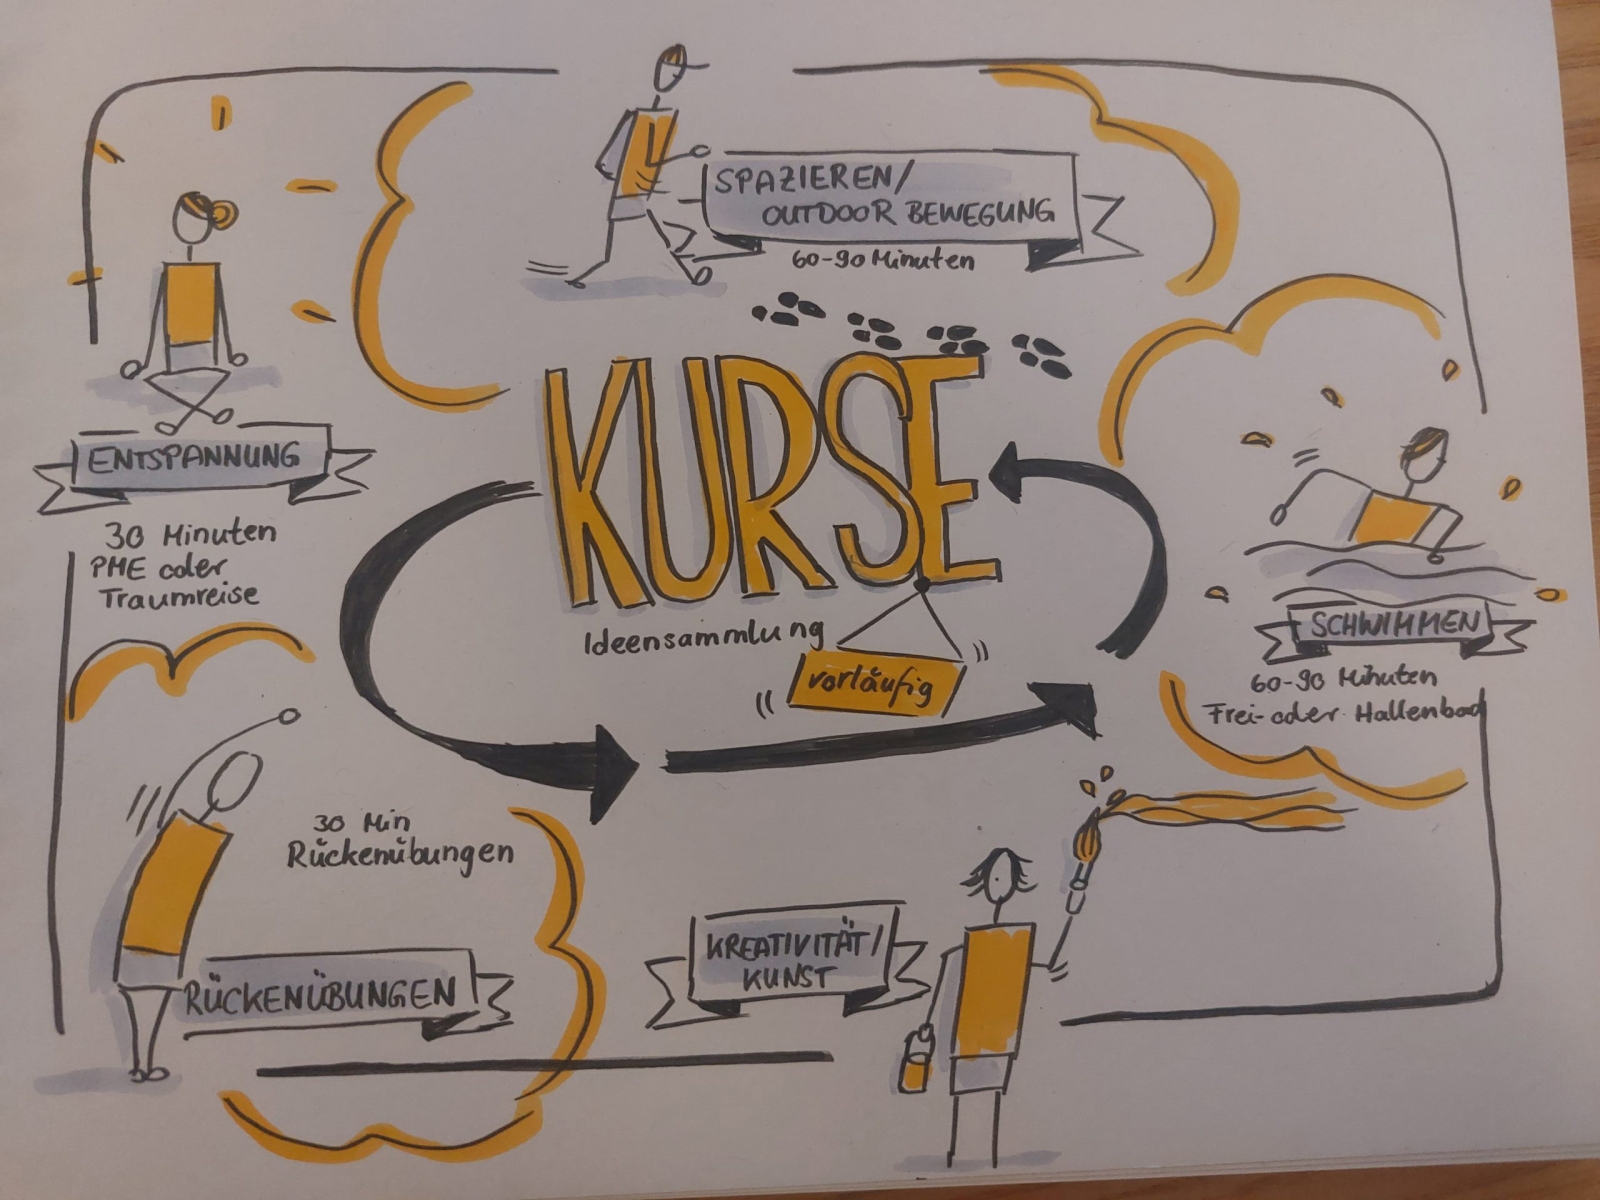 SPAZIEREN/
OUTDOOR BEWEGUNG
60-90 Minuten
ENTSPANNUNG
30 Minuten
PME oder
Traumreise
KURSE
Ideensammlung
vorläufig
SCHWIMMEN
60-90 Minuten
Frei- oder Hallenbad
30 Min
Rückenübungen
RÜCKENÜBUNGEN
KREATIVITÄT/
KUNST